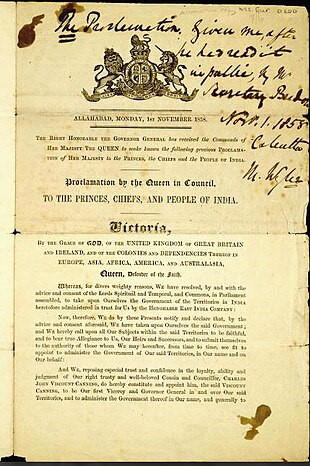 The Proclamation, given me, after
he had read it
in public, by Mr
Secretary
Nov. 1. 1858
Calcutta
ALLAHABAD, MONDAY, 1ST NOVEMBER 1858.
THE RIGHT HONORABLE THE GOVERNOR GENERAL has received the Commands of
HER MAJESTY THE QUEEN to make known the following gracious PROCLAMA-
TION of HER MAJESTY to the PRINCES, the CHIEFS and the PEOPLE OF INDIA.
Proclamation by the Queen in Council,
TO THE PRINCES, CHIEFS, AND PEOPLE OF INDIA.
Victoria,
BY THE GRACE OF GOD, OF THE UNITED KINGDOM OF GREAT BRITAIN
AND IRELAND, AND OF THE COLONIES AND DEPENDENCIES THEREOF IN
EUROPE, ASIA, AFRICA, AMERICA, AND AUSTRALASIA,
Queen, Defender of the Faith.
Whereas, for divers weighty reasons, We have resolved, by and with the
advice and consent of the Lords Spiritual and Temporal, and Commons, in Parliament
assembled, to take upon Ourselves the Government of the Territories in INDIA
heretofore administered in trust for Us by the HONORABLE EAST INDIA COMPANY:
Now, therefore, We do by these Presents notify and declare that, by the
advice and consent aforesaid, We have taken upon Ourselves the said Government;
and We hereby call upon all Our Subjects within the said Territories to be faithful,
and to bear true Allegiance to Us, Our Heirs and Successors, and to submit themselves
to the authority of those whom We may hereafter, from time to time, see fit to
appoint to administer the Government of Our said Territories, in Our name and on
Our behalf:
And We, reposing especial trust and confidence in the loyalty, ability and
judgment of Our right trusty and well-beloved Cousin and Councillor, CHARLES
JOHN VISCOUNT CANNING, do hereby constitute and appoint him, the said VISCOUNT
CANNING, to be Our first Viceroy and Governor General in and over Our said
Territories, and to administer the Government thereof in Our name, and generally to